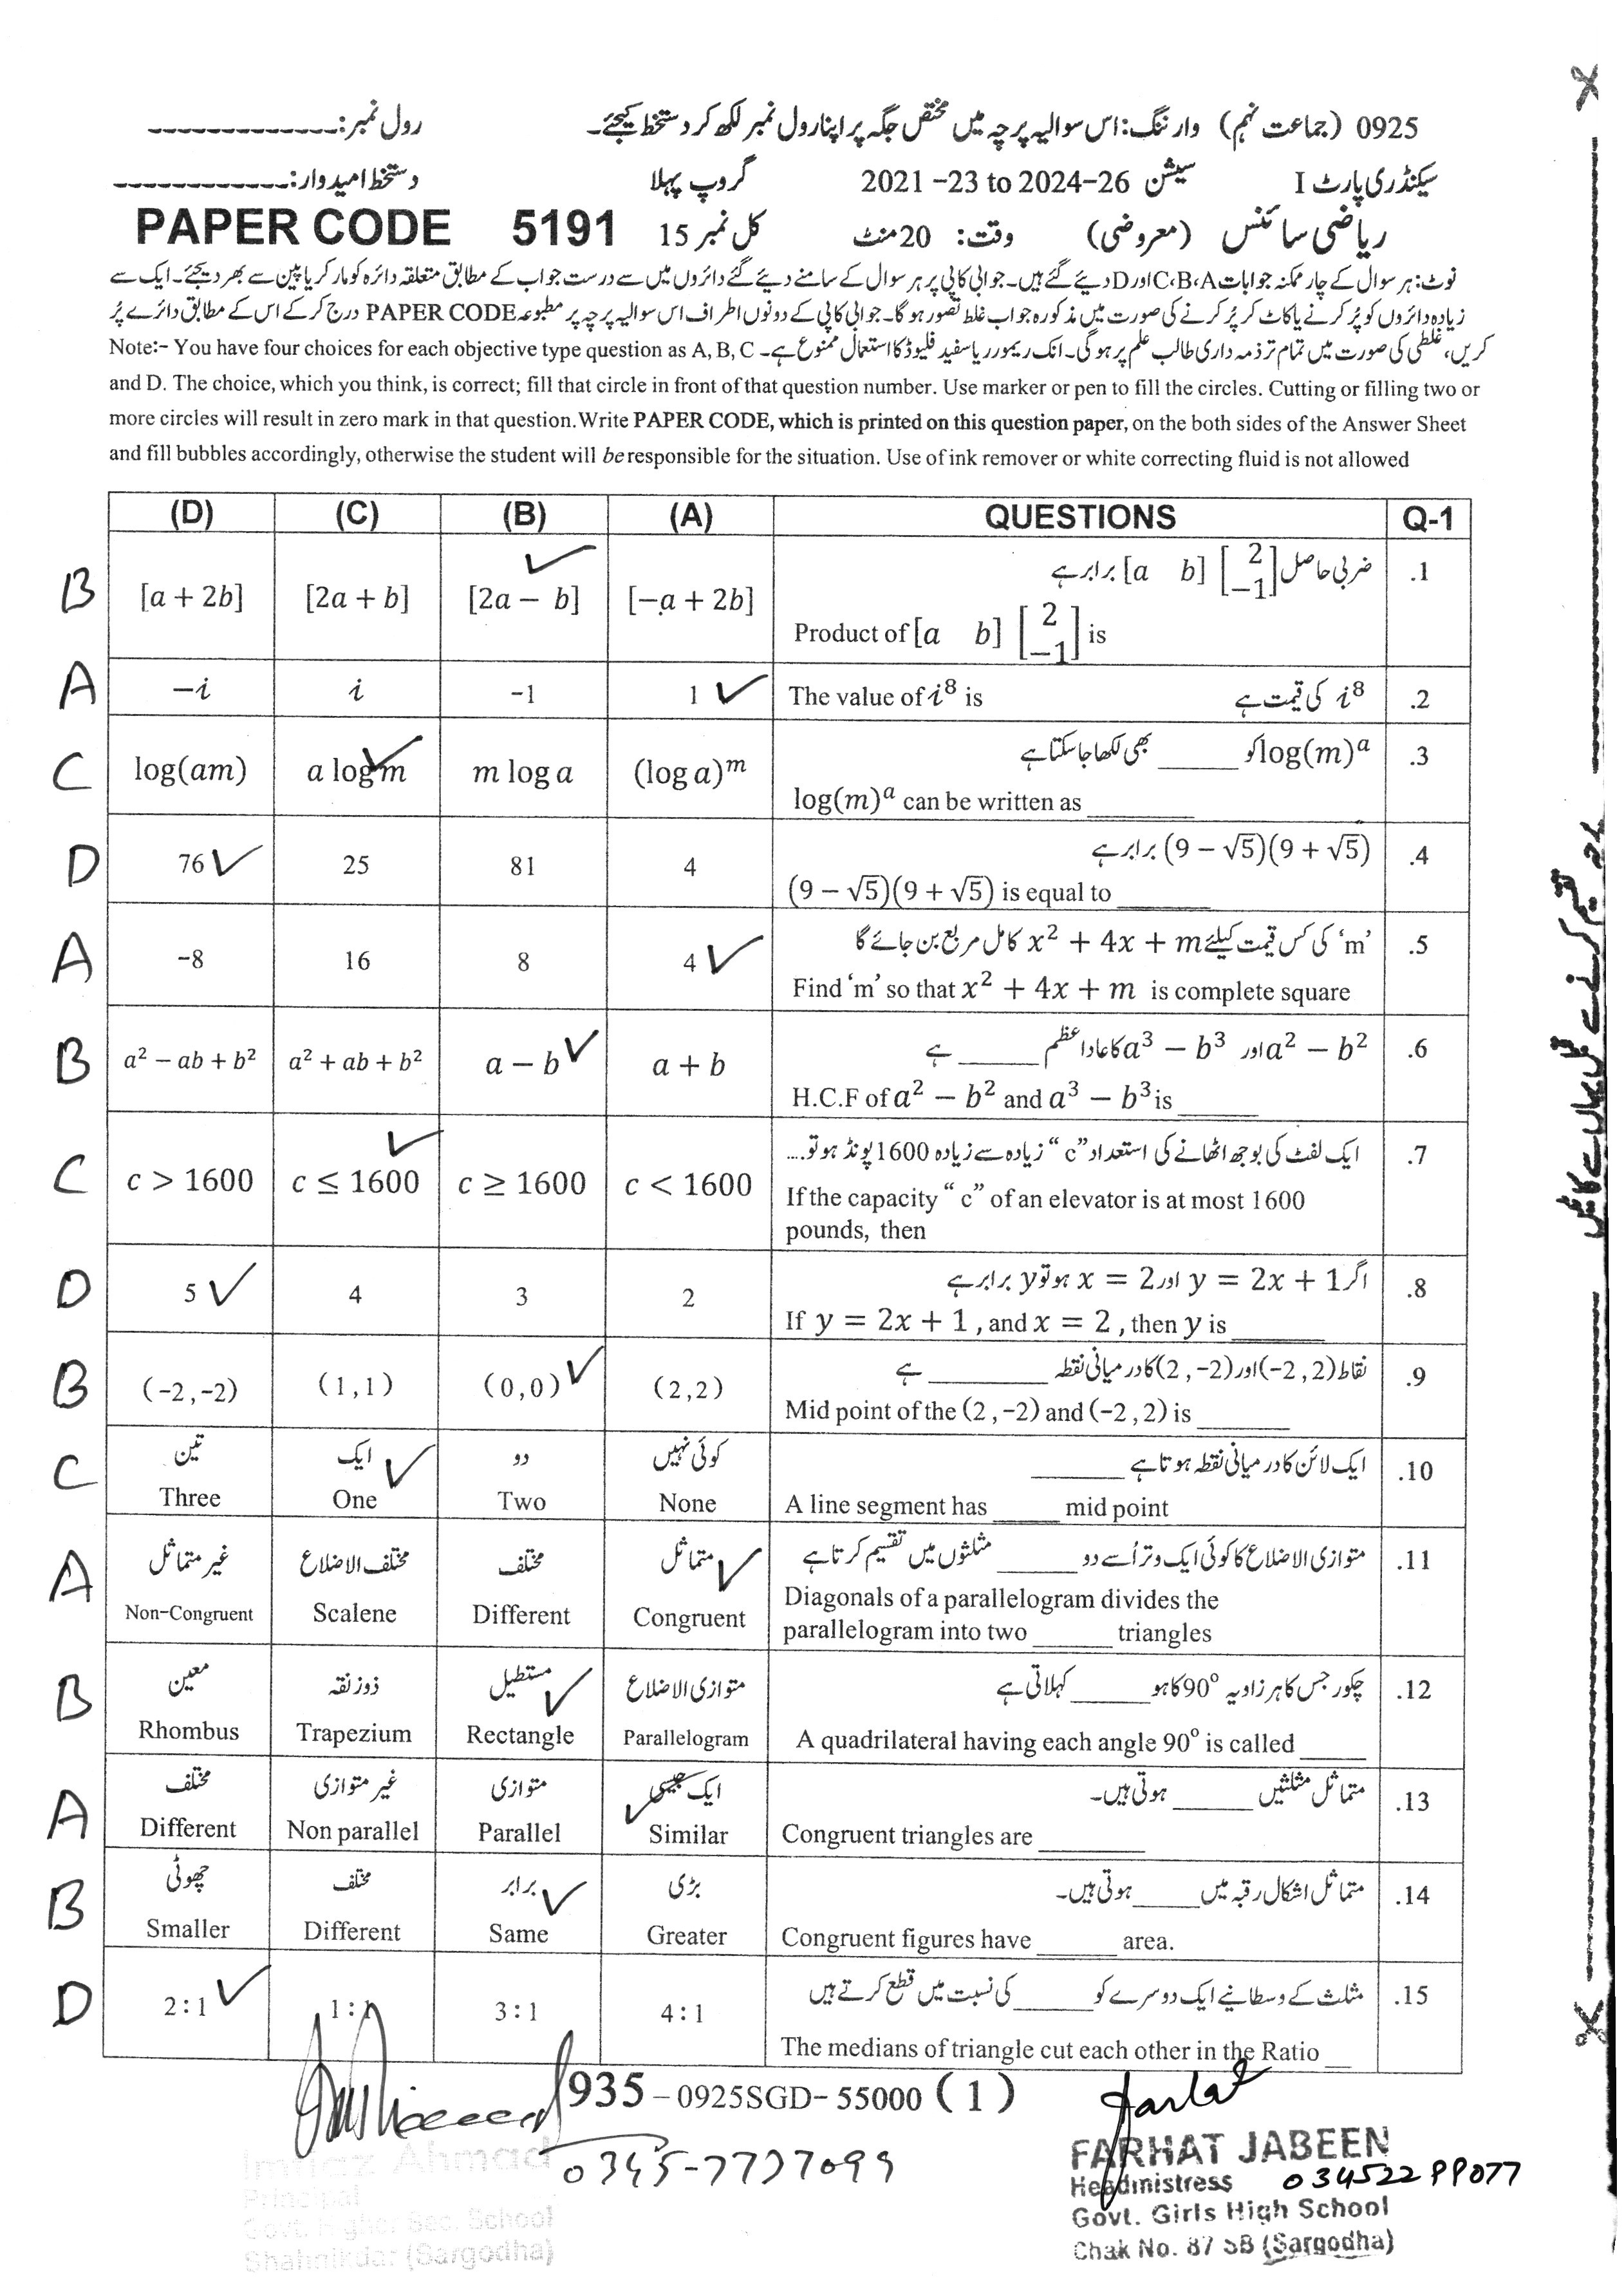 0925 (جماعت نہم) وارننگ: اس سوالیہ پرچہ میں مختص جگہ پر اپنا رول نمبر لکھ کر دستخط کیجئے۔ رول نمبر: _____________
سیکنڈری پارٹ I سیشن 2021 -23 to 2024-26 گروپ پہلا دستخط امیدوار: _____________
ریاضی سائنس (معروضی) وقت: 20 منٹ کل نمبر 15 PAPER CODE 5191
نوٹ: ہر سوال کے چار ممکنہ جوابات A،B،C اور D دیئے گئے ہیں۔ جوابی کاپی پر ہر سوال کے سامنے دیئے گئے دائروں میں سے درست جواب کے مطابق متعلقہ دائرہ کو مارکر یا پین سے بھر دیجئے۔ ایک سے
زیادہ دائروں کو پُر کرنے یا کاٹ کر پُر کرنے کی صورت میں مذکورہ جواب غلط تصور ہو گا۔ جوابی کاپی کے دونوں اطراف اس سوالیہ پرچہ پر مطبوعہ PAPER CODE درج کر کے اس کے مطابق دائرے پُر
کریں، غلطی کی صورت میں تمام تر ذمہ داری طالب علم پر ہو گی۔ انک ریمور یا سفید فلیوڈ کا استعمال ممنوع ہے۔ Note:- You have four choices for each objective type question as A, B, C
and D. The choice, which you think, is correct; fill that circle in front of that question number. Use marker or pen to fill the circles. Cutting or filling two or
more circles will result in zero mark in that question. Write PAPER CODE, which is printed on this question paper, on the both sides of the Answer Sheet
and fill bubbles accordingly, otherwise the student will be responsible for the situation. Use of ink remover or white correcting fluid is not allowed
(D) (C) (B) (A) QUESTIONS Q-1
ضربی حاصل [a b] [2 −1] برابر ہے .1
B [a + 2b] [2a + b] [2a − b] ✓ [−a + 2b]
Product of [a b] [2 −1] is
A −i i -1 1 ✓ The value of i⁸ is i⁸ کی قیمت ہے .2
log(m)ᵃ کو _____ بھی لکھا جا سکتا ہے .3
C log(am) a log m ✓ m log a (log a)ᵐ
log(m)ᵃ can be written as _____
(9 − √5)(9 + √5) برابر ہے .4
D 76 ✓ 25 81 4
(9 − √5)(9 + √5) is equal to _____
'm' کی کس قیمت کیلئے x² + 4x + m کامل مربع بن جائے گا .5
A -8 16 8 4 ✓
Find 'm' so that x² + 4x + m is complete square
a² − b² اور a³ − b³ کا عاداعظم _____ ہے .6
B a² − ab + b² a² + ab + b² a − b ✓ a + b
H.C.F of a² − b² and a³ − b³ is _____
ایک لفٹ کی بوجھ اٹھانے کی استعداد "c" زیادہ سے زیادہ 1600 پونڈ ہو تو.... .7
C c > 1600 c ≤ 1600 ✓ c ≥ 1600 c < 1600
If the capacity " c" of an elevator is at most 1600
pounds, then
اگر y = 2x + 1 اور x = 2 ہو تو y برابر ہے .8
D 5 ✓ 4 3 2
If y = 2x + 1 , and x = 2 , then y is _____
نقاط (−2 , 2) اور (2 , −2) کا درمیانی نقطہ _____ ہے .9
B (−2 ,−2) (1 ,1) (0 ,0) ✓ (2 ,2)
Mid point of the (2 , −2) and (−2 , 2) is _____
ایک لائن کا درمیانی نقطہ ہوتا ہے _____ .10
C تین ایک ✓ دو کوئی نہیں
Three One Two None A line segment has _____ mid point
متوازی الاضلاع کا کوئی ایک وتر اُسے دو _____ مثلثوں میں تقسیم کرتا ہے .11
A غیر متماثل مختلف الاضلاع مختلف متماثل ✓
Non-Congruent Scalene Different Congruent Diagonals of a parallelogram divides the
parallelogram into two _____ triangles
چکور جس کا ہر زاویہ 90° کا ہو _____ کہلاتی ہے .12
B معین ذوزنقہ مستطیل ✓ متوازی الاضلاع
Rhombus Trapezium Rectangle Parallelogram A quadrilateral having each angle 90° is called _____
متماثل مثلثیں _____ ہوتی ہیں۔ .13
A مختلف غیر متوازی متوازی ایک جیسی ✓
Different Non parallel Parallel Similar Congruent triangles are _____
متماثل اشکال رقبہ میں _____ ہوتی ہیں۔ .14
B چھوٹی مختلف برابر ✓ بڑی
Smaller Different Same Greater Congruent figures have _____ area.
مثلث کے وسطانیے ایک دوسرے کو _____ کی نسبت میں قطع کرتے ہیں .15
D 2 : 1 ✓ 1 : 1 3 : 1 4 : 1
The medians of triangle cut each other in the Ratio __
935 – 0925SGD– 55000 ( 1 )
Imtiaz Ahmad
Principal
Govt. Higher Sec. School
Shahnikdar (Sargodha)
0345-7727099
Farhat
FARHAT JABEEN
Headmistress 03452299077
Govt. Girls High School
Chak No. 87 SB (Sargodha)